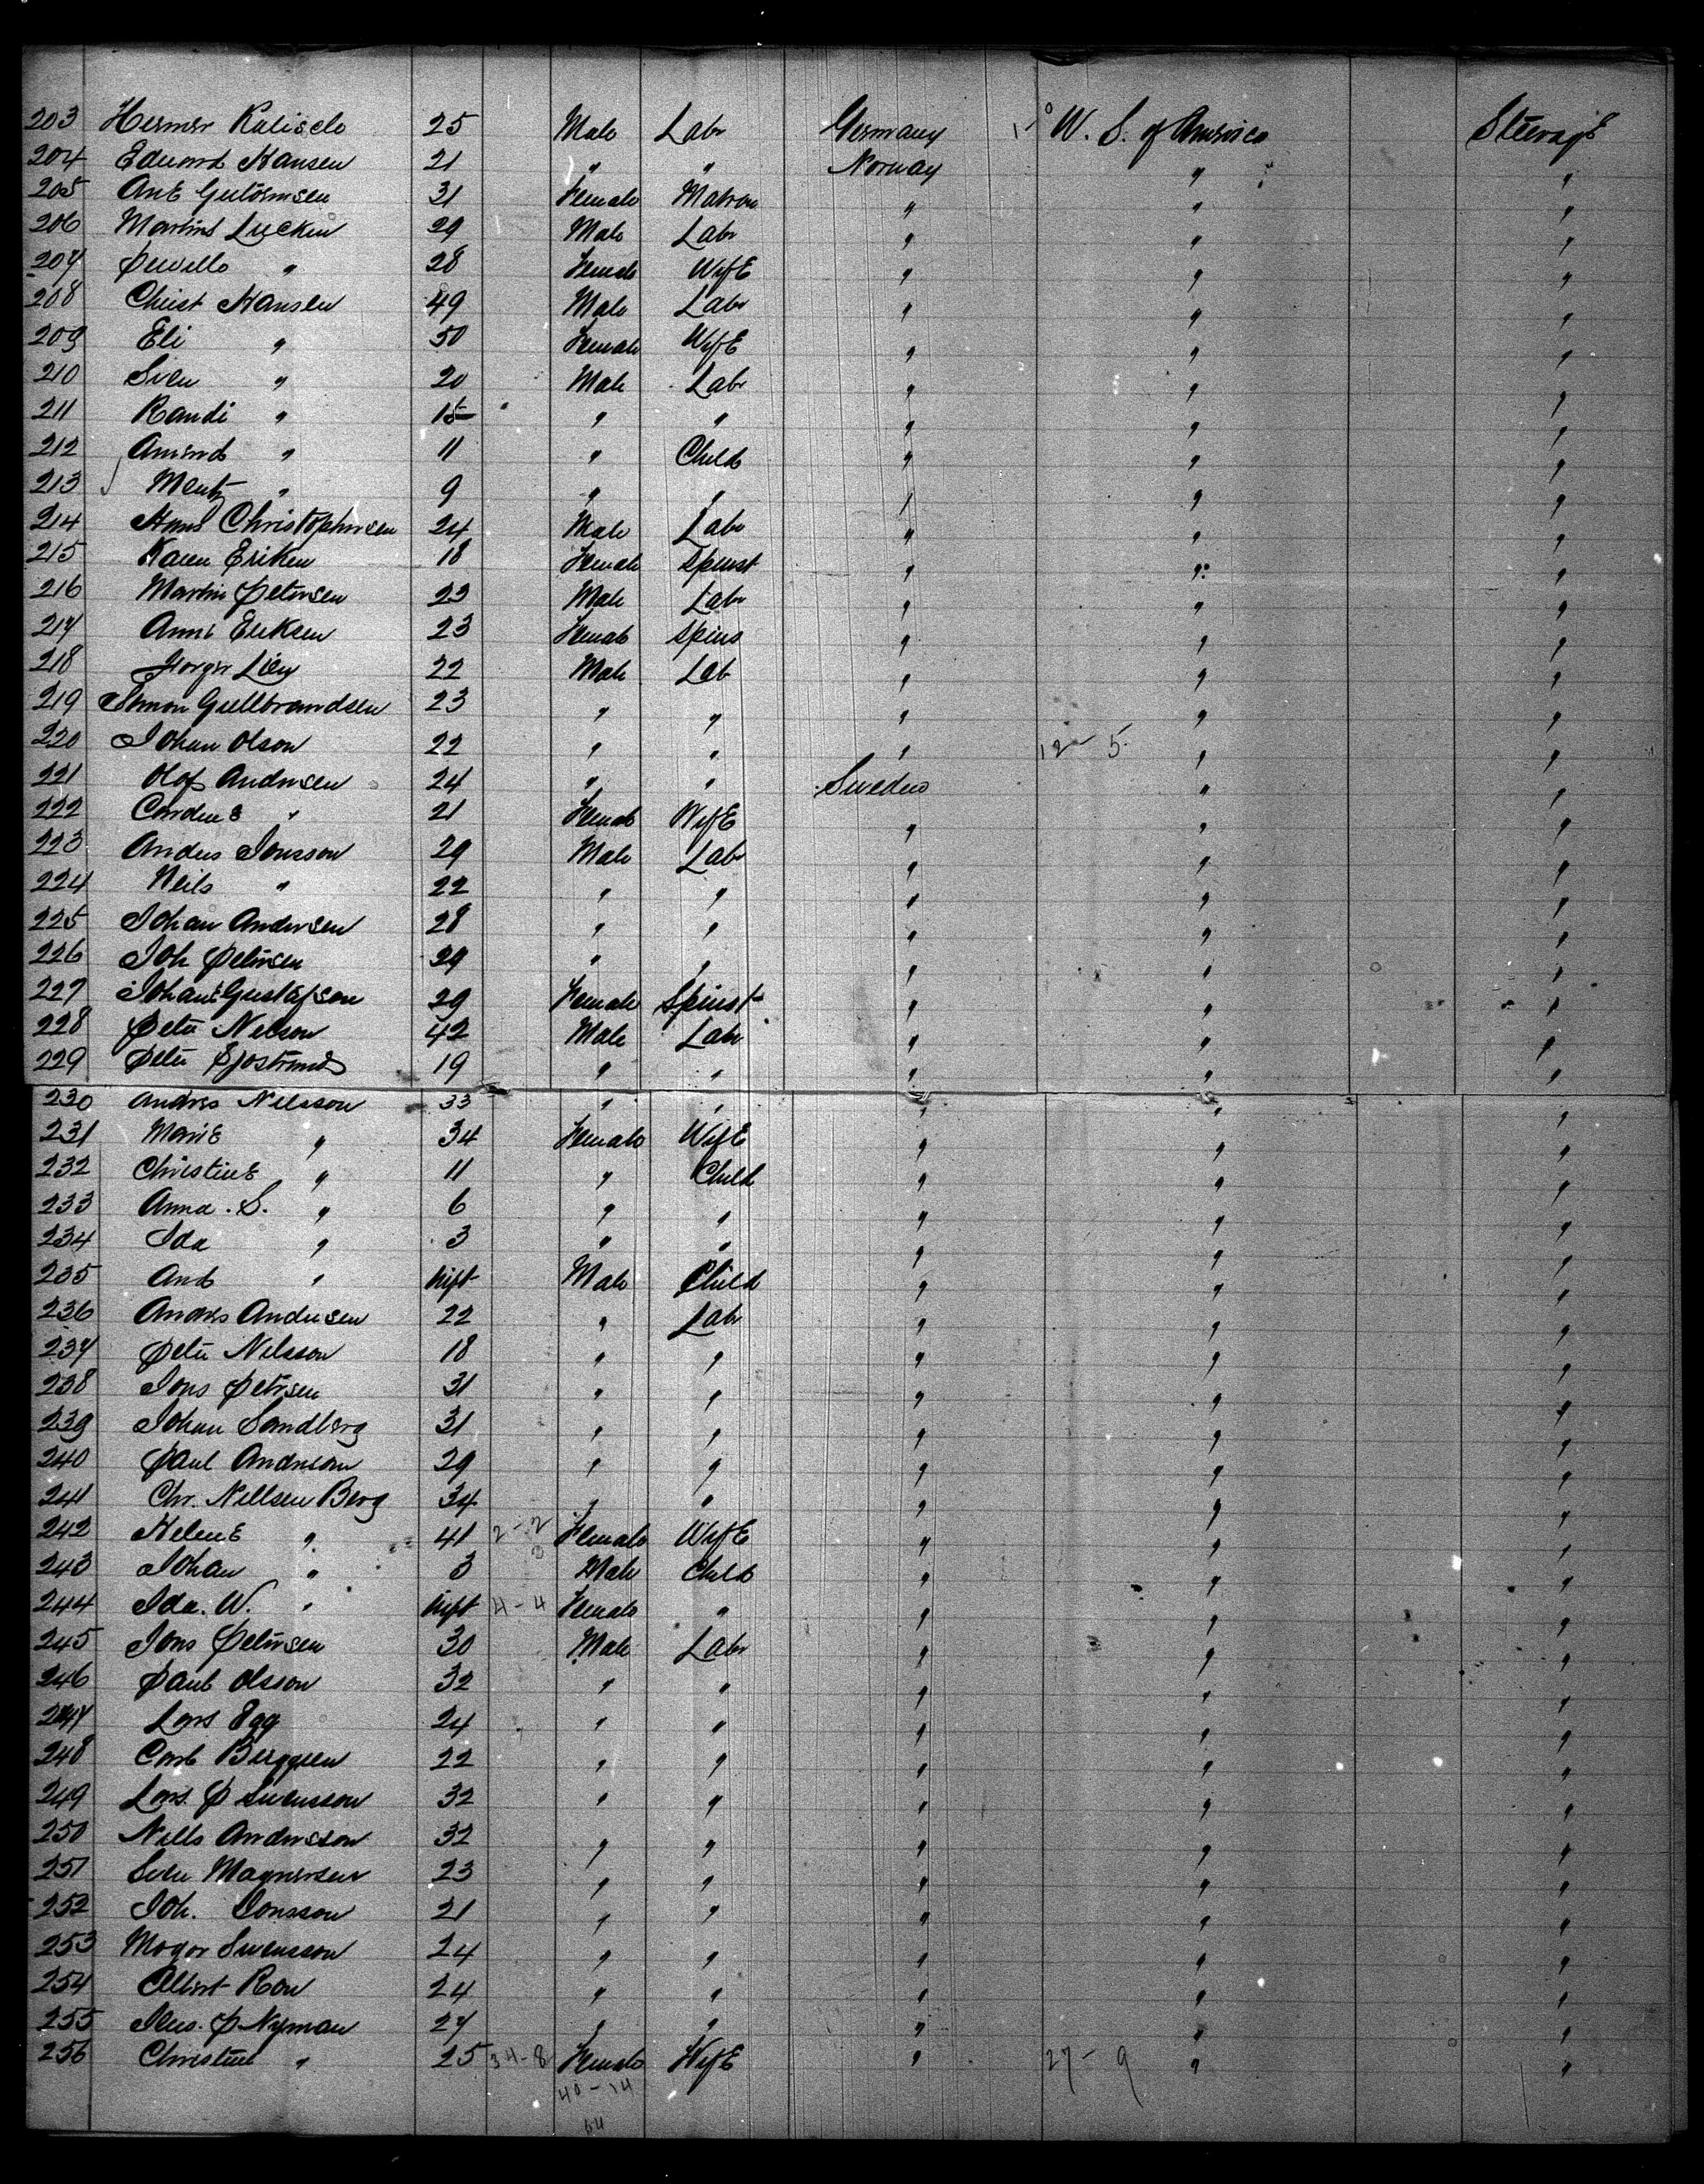 203 Hermr Kalisclo 25 Male Labr Germany U. S. of America Steerage
204 Eduard Hansen 21 " " Norway " "
205 Ane Gulormsen 31 Female Matron " " "
206 Martins Lucken 29 Male Labr " " "
207 " 28 Female Wife " " "
208 Christ Hansen 49 Male Labr " " "
209 Eli " 50 Female Wife " " "
210 Sven " 20 Male Labr " " "
211 Randi " 15 " " " " "
212 " 11 " Child " " "
213 Mentz " 9 " " " " "
214 Hans Christophersen 24 Male Labr " " "
215 Karen Eriken 18 Female Spinst " " "
216 Martin Petersen 23 Male Labr " " "
217 Anne Eriksen 23 Female Spins " " "
218 Jorger Lien 22 Male Lab " " "
219 Simon Gullbrandsen 23 " " " " "
220 Johan Olson 22 " " " 12 - 5 " "
221 Olof Andersen 24 " " Sweden " "
222 " 21 Female Wife " " "
223 Andes Jonsson 29 Male Labr " " "
224 Neils " 22 " " " " "
225 Johan Andersen 28 " " " " "
226 Joh Petersen 29 " " " " "
227 Johane Gustafson 29 Female Spinst " " "
228 Peter Nelson 42 Male Labr " " "
229 Peter Sjostrand 19 " " " " "
230 Andres Nelsson 33 " " " " "
231 Marie " 34 Female Wife " " "
232 Christine " 11 " Child " " "
233 Anna. S. " 6 " " " " "
234 Ida " 3 " " " " "
235 And " Inft Male Child " " "
236 Andres Andersen 22 " Labr " " "
237 Peter Nilsson 18 " " " " "
238 Jons Petersen 31 " " " " "
239 Johan Sandberg 31 " " " " "
240 Paul Andreson 29 " " " " "
241 Chr. Nellsen Berg 34 " " " " "
242 Helene " 41 2-2 Female Wife " " "
243 Johan " 3 Male Child " " "
244 Ida. W. " Inft 4-4 Female " " " "
245 Jons Petersen 30 Male Labr " " "
246 Paul Olsson 32 " " " " "
247 Lars Egg 24 " " " " "
248 Carl Berggren 22 " " " " "
249 Lars. P Swensson 32 " " " " "
250 Nells Andersson 32 " " " " "
251 Sven Magnersen 23 " " " " "
252 Joh. Jonsson 21 " " " " "
253 Mogor Swensson 24 " " " " "
254 Albert Ron 24 " " " " "
255 Jens. P Nyman 27 " " " " "
256 Christine " 25 34-8 Female Wife " 27 - 9 " "
40-14
64